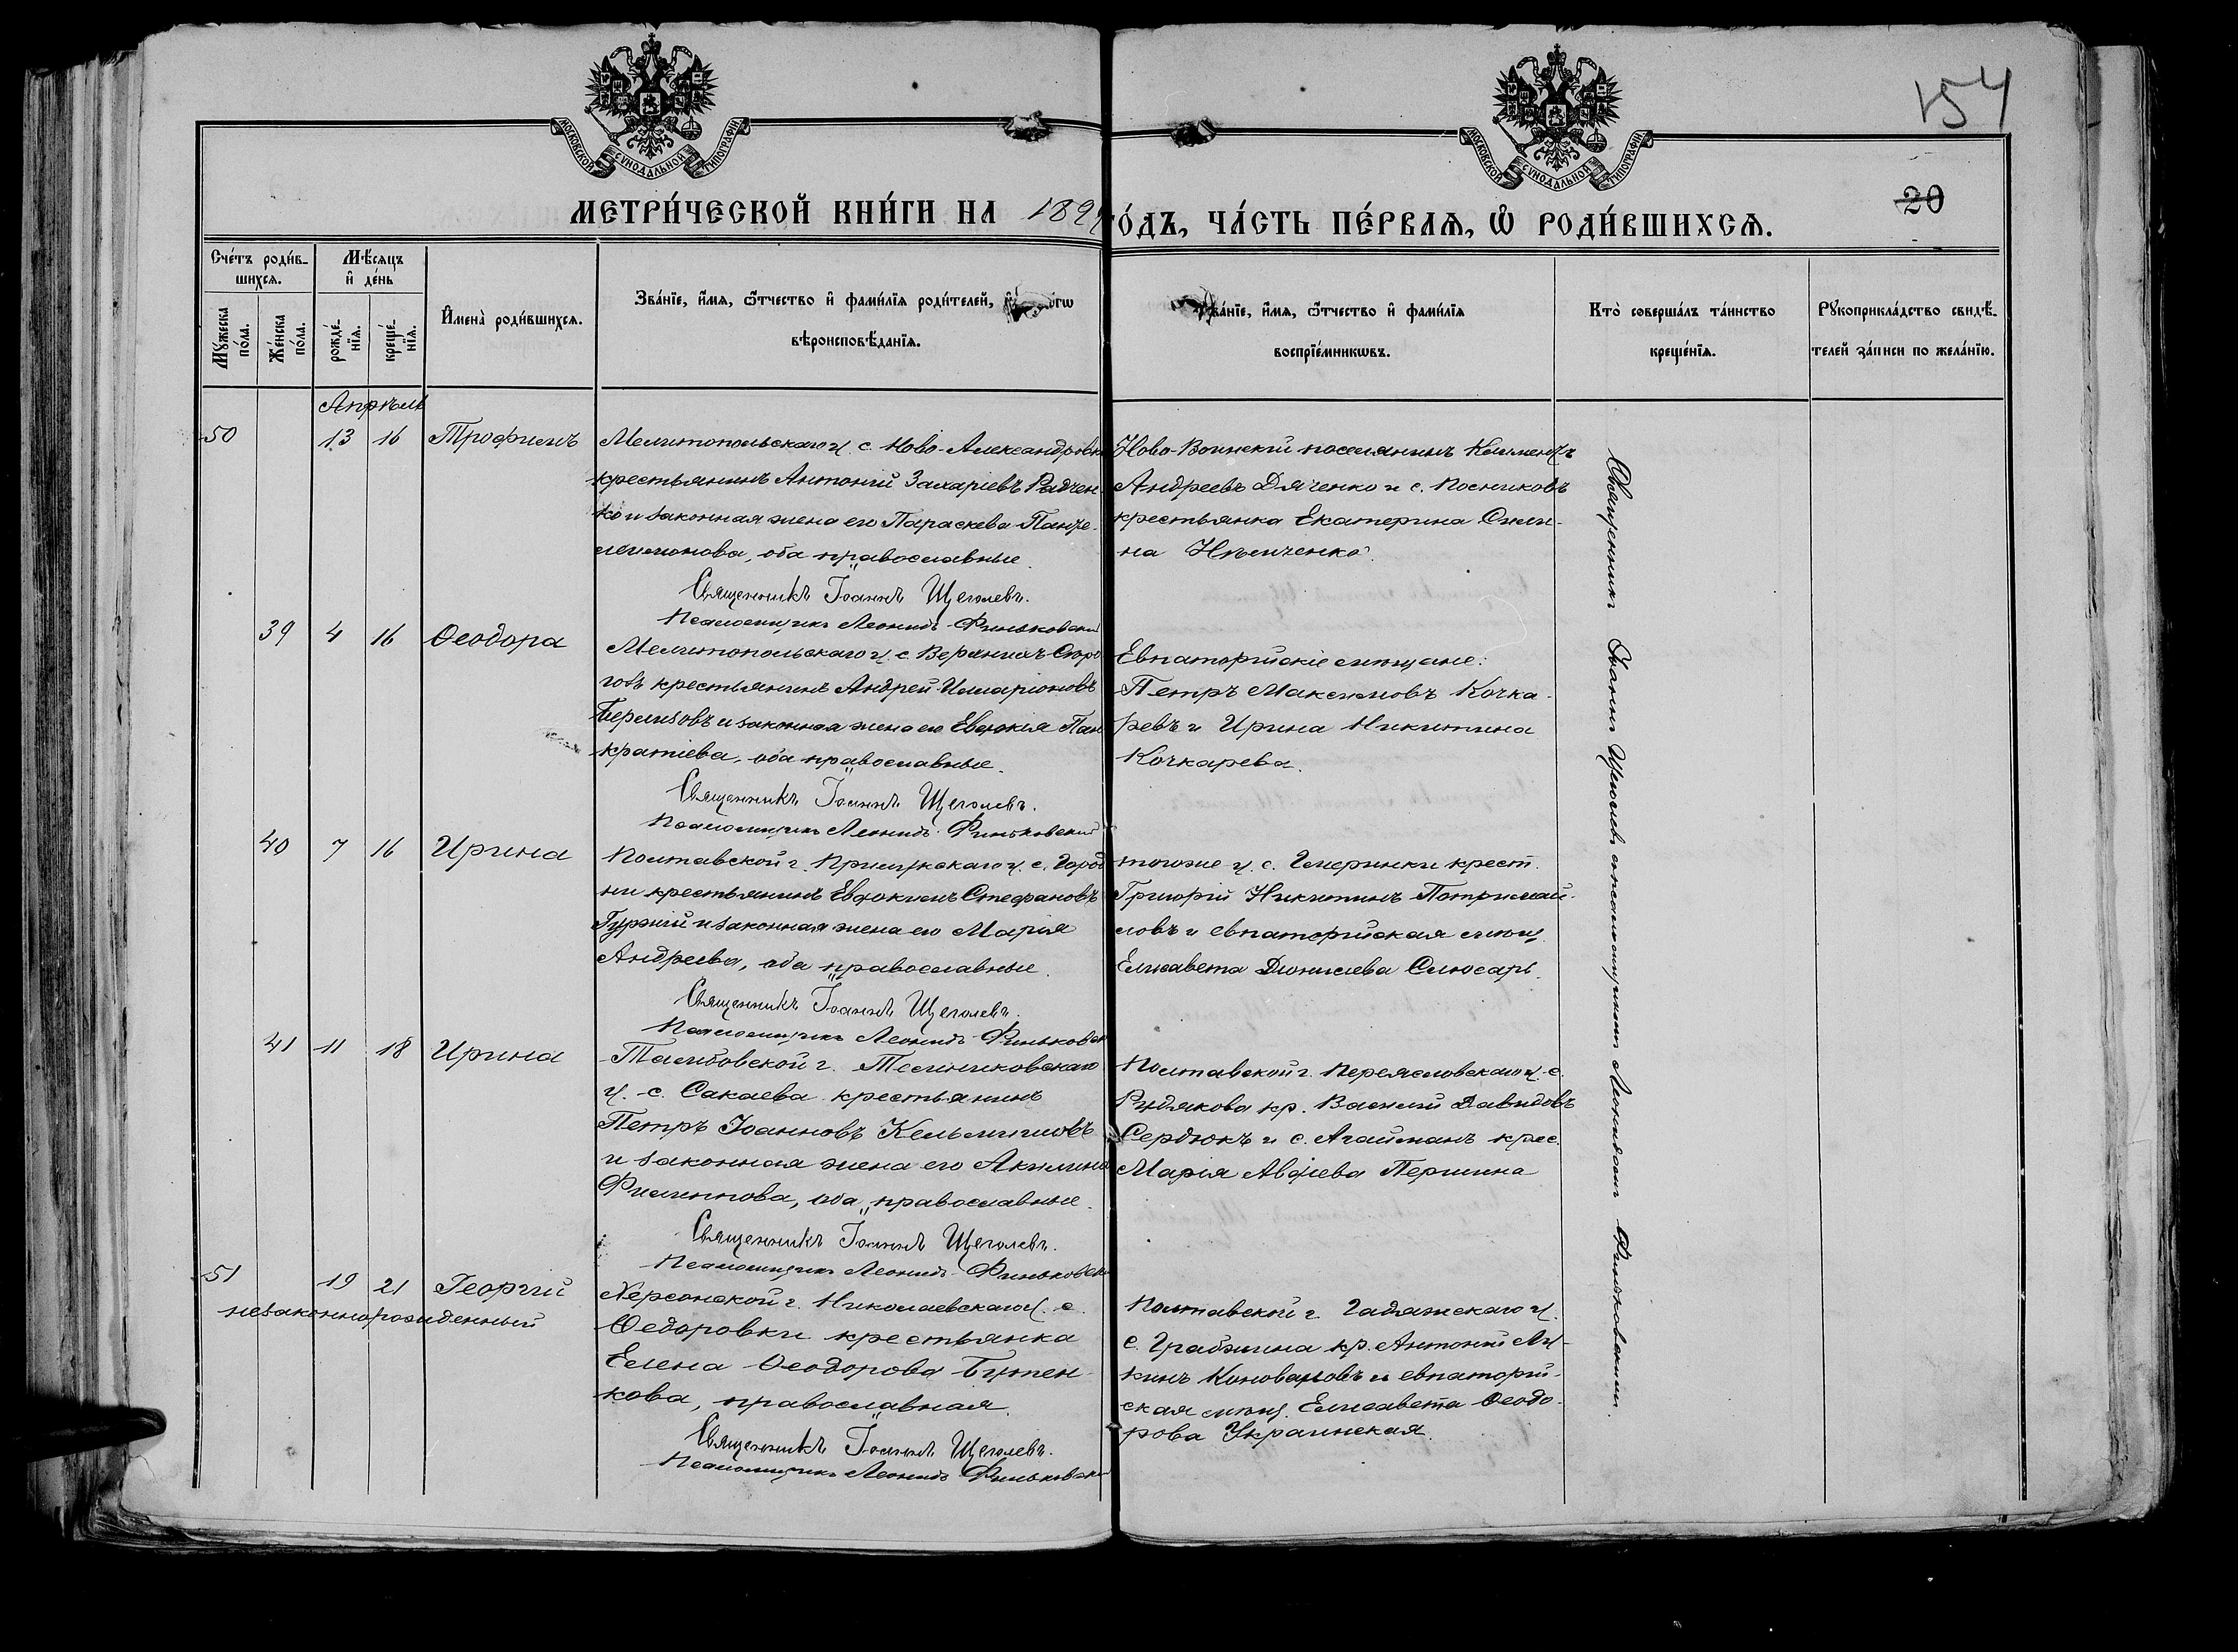 154
20
МОСКОВСКОЙ СУНОДАЛЬНОЙ ТИПОГРАФІИ
МОСКОВСКОЙ СУНОДАЛЬНОЙ ТИПОГРАФІИ
МЕТРИ́ЧЕСКОЙ КНИ́ГИ НА 189
ГО́ДЪ, ЧА́СТЬ ПЕ́РВАѦ, Ѡ҆ РОДИ́ВШИХСѦ.
Сче́тъ роди́в-
шихся.
Мѣ́сяцъ
и҆ де́нь
Му́жеска по́ла.
Же́нска по́ла.
рожде́нїя.
креще́нїя.
И҆мена̀ роди́вшихся.
Зва́нїе, и҆́мя, ѻ҆́тчество и҆ фами́лїя роди́телей, и҆
вѣроисповѣ́данїя.
Зва́нїе, и҆́мя, ѻ҆́тчество и҆ фами́лїя
воспрїе́мникωвъ.
Кто̀ соверша́лъ та́инство
креще́нїя.
Рукоприкла́дство свидѣ́-
телей за́писи по жела́нїю.
Апрѣль
50 13 16 Трофимъ
Мелитопольскаго у. с. Ново-Александровки
крестьянинъ Антоній Захаріевъ Радчен-
ко и законная жена его Параскева Панте-
леимонова, оба православные.
Священникъ Іоаннъ Щеголевъ.
Псаломщикъ Леонидъ Финьковскій
Ново-Воинскій поселянинъ Климентъ
Андреевъ Дяченко и с. Посниковъ
крестьянка Екатерина Сили-
на Нѣмченко.
39 4 16 Ѳеодора
Мелитопольскаго у. с. Верхнихъ-Сѣро-
гозъ крестьянинъ Андрей Илларіоновъ
Берлизовъ и законная жена его Евдокія Пан-
кратіева, оба православные.
Священникъ Іоаннъ Щеголевъ.
Псаломщикъ Леонидъ Финьковскій
Евпаторійскіе мѣщане:
Петръ Максимовъ Кочка-
ревъ и Ирина Никитина
Кочкарева.
40 7 16 Ирина
Полтавской г. Прилукскаго у. с. Город-
ни крестьянинъ Евдокимъ Стефановъ
Гуржій и законная жена его Марія
Андреева, оба православные.
Священникъ Іоаннъ Щеголевъ.
Псаломщикъ Леонидъ Финьковскій
тогоже у. с. Гмеринки крест.
Григорій Никитинъ
и евпаторійская мѣщ.
Елисавета Діонисіева Слюсарь.
41 11 18 Ирина
Тамбовской г. Темниковскаго
у. с. Сакаева крестьянинъ
Петръ Іоанновъ
и законная жена его Акилина
Филиппова, оба православные.
Священникъ Іоаннъ Щеголевъ.
Псаломщикъ Леонидъ Финьковскій
Полтавской г. Переясловскаго у. с.
Рудякова кр. Василій Давидовъ
Сердюкъ и с. Агайманъ крес.
Марія Авдіева Першина
51 19 21 Георгій
незаконнорожденный
Херсонской г. Николаевскаго у. с.
Ѳедоровки крестьянка
Елена Ѳеодорова Бутен-
кова, православная.
Священникъ Іоаннъ Щеголевъ.
Псаломщикъ Леонидъ Финьковскій
Полтавской г. Гадяжскаго у.
с. Грабжина кр. Антоній Лу-
кинъ Коноваловъ и евпаторій-
ская мѣщ. Елисавета Ѳеодо-
рова Украинская.
Священникъ Іоаннъ Щеголевъ съ псаломщикомъ Леонидомъ Финьковскимъ.